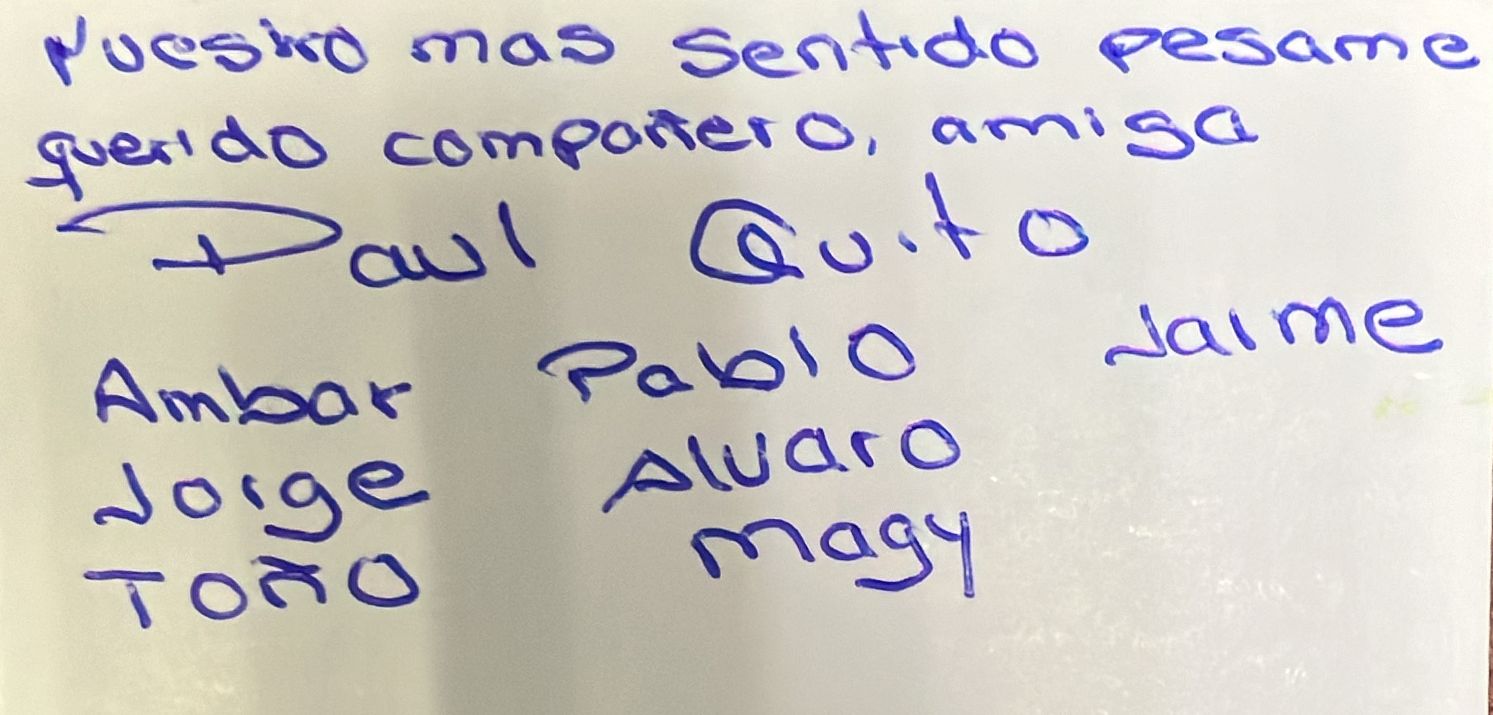 Nuestro mas sentido pesame
querido compañero, amiga
Paul Quito
Ambar Pablo Jaime
Jorge Alvaro
Toño Magy